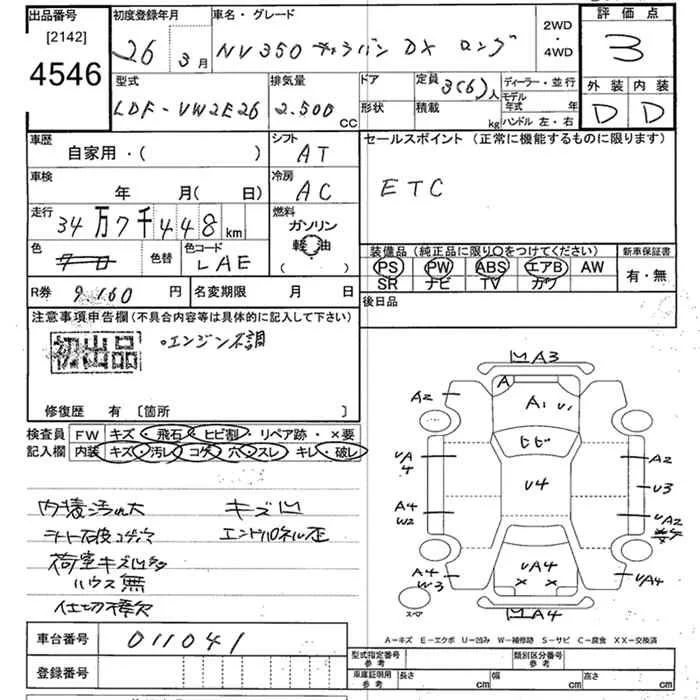 出品番号 初度登録年月 車名・グレード 2WD・4WD 評価点
[2142] 26年 3月 NV350 キャラバン DX ロング 3
4546
型式 排気量 ドア 定員 3(6)人 ディーラー・並行 外装 内装
LDF-VW2E26 2.500 CC 形状 積載 kg モデル年式 年 D D
ハンドル 左・右
車歴 シフト セールスポイント (正常に機能するものに限ります)
自家用・( ) AT
車検 冷房 ETC
年 月(日) AC
走行 燃料
34万7千448km ガソリン
軽・油
( ・ )
色 色替 色コード 装備品 (純正品に限り○をつけてください) 新車保証書
LAE PS PW ABS エアB AW 有・無
SR ナビ TV カワ
R券 9,160円 名変期限 月 日 後日品
注意事項申告欄(不具合内容等は具体的に記入して下さい)
初出品 ・エンジン不調
修復歴 有 [箇所 ]
検査員 FW キズ・飛石・ヒビ割・リペア跡・×要
記入欄 内装 キズ・汚レ コゲ・穴・スレ キレ・破レ
内装汚れ大 キズ凹
シート破コゲ穴 エンドパネル歪
荷室キズ凹多
ハウス無
仕切棒欠
A3
A
A2 A1 U1
ヒビ
UA4 A2
U4 U3
A4 W2 UA2
A4 W3 UA4 UA4
× ×
スペア A4
A-キズ E-エクボ U-凹み W-補修跡 S-サビ C-腐食 XX-交換済
車台番号 011041
登録番号
型式指定番号 参考 類別区分番号 参考
車庫証明用 参考 長さ cm 幅 cm 高さ cm